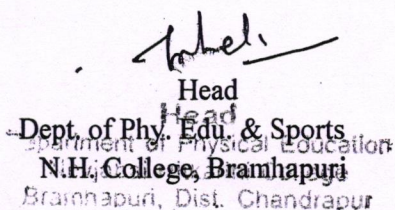 Head
Head
Dept. of Phy. Edu. & Sports
Department of Physical Education
N.H. College, Bramhapuri
Bramhapuri, Dist. Chandrapur